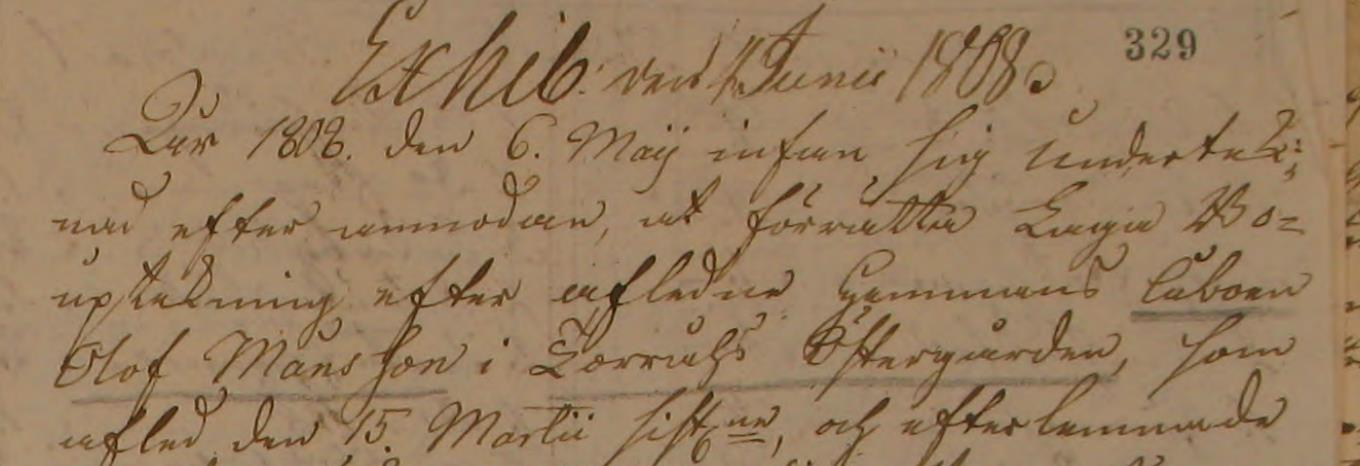 329
Exhib: den 1 Junii 1808.
Åhr 1808. den 6. Maij infan sig undertek-
nad efter anmodan, at förrätta Laga Bo=
upteckning efter afledne Hemmans Åboen
Olof Månsson i Östergården, som
afled den 15. Martii sistne, och efterlemnade